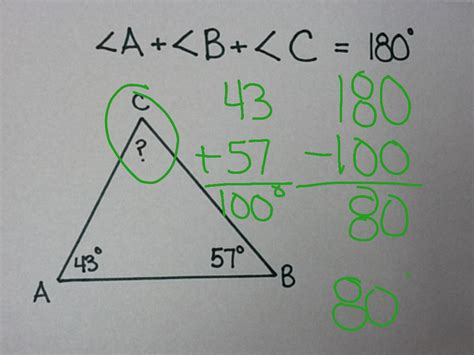 ∠A + ∠B + ∠C = 180°
C
?
A
43°
57°
B
43
+57
100°
180
-100
80
80